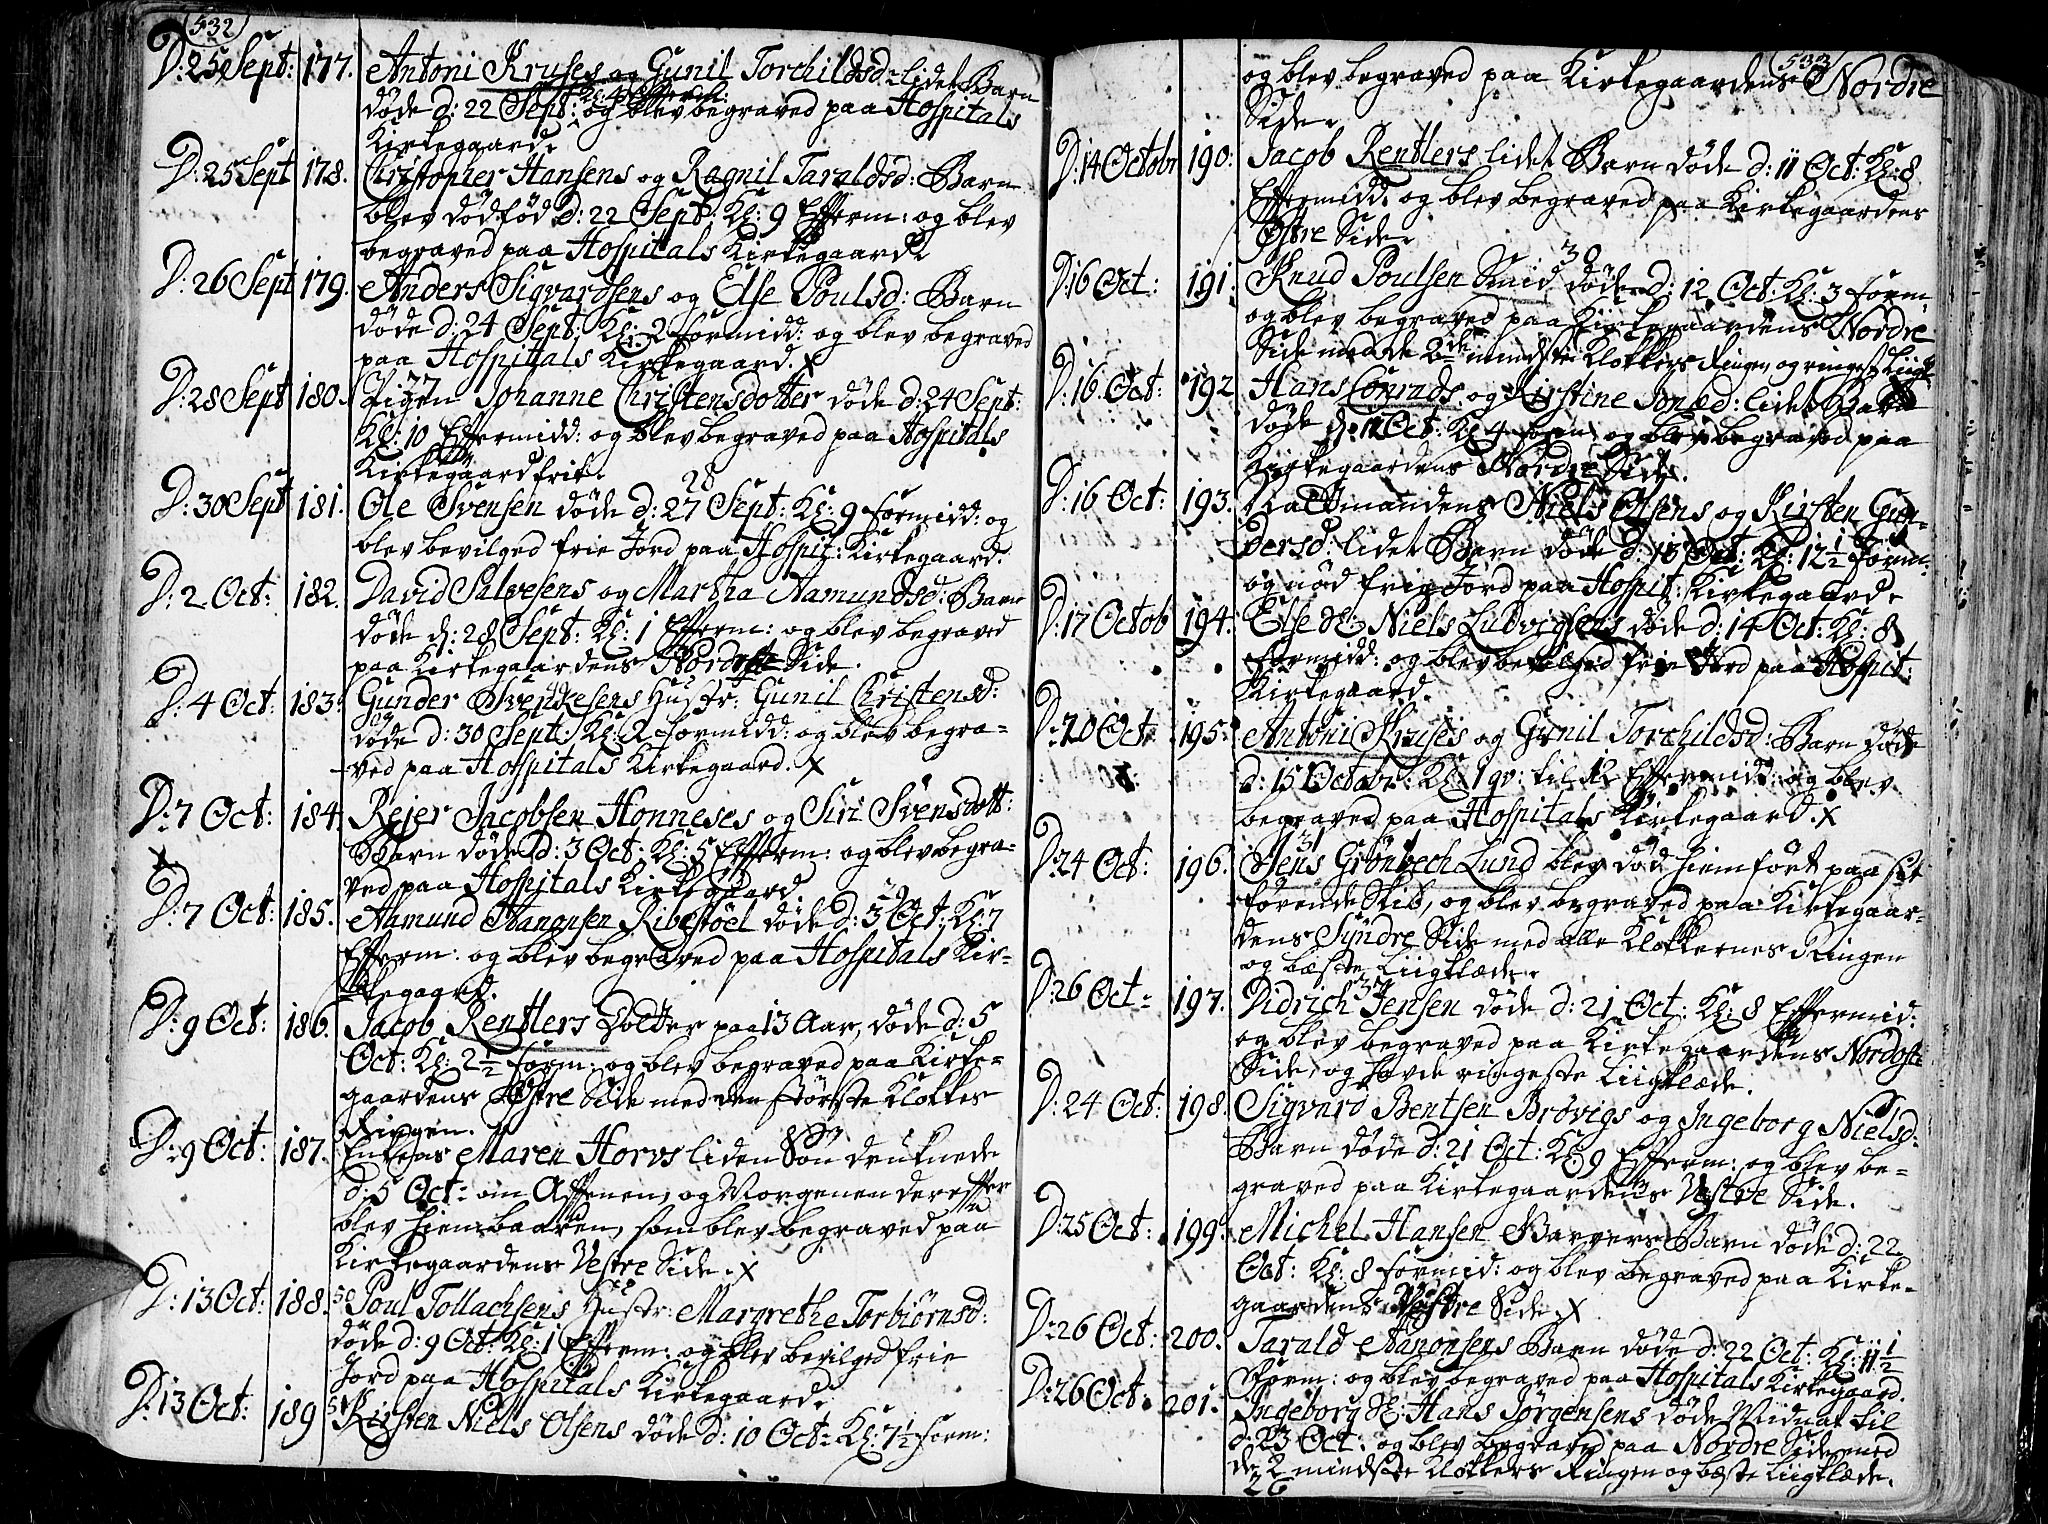 532
D: 25 Sept: 177. Antoni Kruses og Gunil Torchildsd: lidet Barn
døde d: 22 Sept: Kl: 4 Efterm: og blev begraved paa Hospitals
Kirkegaard.
D: 25 Sept 178. Christopher Hansens og Ragnil Taraldsd: Barn
blev dödfød d: 22 Sept: Kl: 9 Efterm: og blev
begraved paa Hospitals Kirkegaard
D: 26 Sept 179. Anders Sigvardsens og Else Poulsd: Barn
døde d: 24 Sept: Kl: 2 Formidd: og blev begraved
paa Hospitals Kirkegaard. X
27
D: 28 Sept 180. Pigen Johanne Christensdotter døde d: 24 Sept:
Kl: 10 Eftermidd: og blev begraved paa Hospitals
Kirkegaard frit.
28
D: 30 Sept 181. Ole Svensen døde d: 27 Sept: Kl: 9 Formidd: og
blev bevilged frie Jord paa Hospit: Kirkegaard.
D: 2 Oct: 182. David Salvesens og Martha Aamundsd: Barn
døde d: 28 Sept: Kl: 1 Efterm: og blev begraved
paa Kirkegaardens Nordre Side.
D: 4 Oct: 183. Gunder Svenkesens Hustr: Gunil Christensd:
døde d: 30 Sept: Kl: 2 Formidd: og blev begra-
ved paa Hospitals Kirkegaard. X
D: 7 Oct: 184. Rejer Jacobsen Honneses og Siri Svensdott:
Barn døde d: 3 Oct: Kl: 5 Efterm: og blev begra-
ved paa Hospitals Kirkegaard.
29
D: 7 Oct: 185. Aamund Aanonsen Ribestöel døde d: 3 Oct: Kl: 7
Efterm: og blev begraved paa Hospitals Kir-
kegaard.
D: 9 Oct: 186. Jacob Rentlers Dotter paa 13 Aar, døde d: 5
Oct: Kl: 2½ Form: og blev begraved paa Kirke-
gaardens Østre Side med den største Klokkes
Ringen.
D: 9 Oct: 187. Enkens Maren Horvs liden Søn druknede
d: 5 Oct: om Aftenen, og Morgenen derefter
blev hiembaaren, som blev begraved paa
Kirkegaardens Vestre Side. X
D: 13 Oct: 188. 50 Poul Tollachsens Hustr: Margrethe Torbiørnsd:
døde d: 9 Oct: Kl: 1 Efterm: og blev bevilged frie
Jord paa Hospitals Kirkegaard.
D: 13 Oct: 189 51 Kirsten Niels Olsens døde d: 10 Oct: Kl: 7½ Form:
533
og blev begraved paa Kirkegaardens Nordre
Side.
D: 14 Octobr 190. Jacob Rentlers lidet Barn døde d: 11 Oct: Kl: 8
Eftermidd: og blev begraved paa Kirkegaardens
Østre Side.
30
D: 16 Oct: 191. Knud Poulsen Smid døde d: 12 Oct: Kl: 3 Form:
og blev begraved paa Kirkegaardens Nordre
Side med de 2de mindste Klokkers Ringen, og ringest Liigk:
D: 16 Oct: 192 Hans Conrads og Kirstine Jonæd: lidet Barn
døde d: 12 Oct: Kl: 4 Form: og blev begraved paa
Kirkegaardens Nordre Side.
D: 16 Oct: 193. Baadsmandens Niels Olsens og Kirsten Gun-
dersd: lidet Barn døde d: 13 Oct: Kl: 12½ Form:
og nød frie Jord paa Hospit: Kirkegaard.
D: 17 Octob 194. Else Sl: Niels Ludvigsens døde d: 14 Oct: Kl: 8
Formidd: og blev bevilged frie Jord paa Hospit:
Kirkegaard.
D: 20 Oct 195. Antoni Kruses og Gunil Torchildsd: Barn døde
d: 15 Octobr: Kl: 1 qv: til 12 Eftermidd: og blev
begraved paa Hospitals Kirkegaard. X
31
D: 24 Oct: 196. Jens Grönbech Lund blev död hiemført paa sit
førende Skib, og blev begraved paa Kirkegaar-
dens Syndre Side med alle Klokkernes Ringen
og bæste Liigklæde.
32
D: 26 Oct: 197. Didrich Jensen døde d: 21 Oct: Kl: 8 Eftermid:
og blev begraved paa Kirkegaardens Nordoste
Side, og havde ringeste Liigklæde.
D: 24 Oct: 198. Sigvard Bentsen Brøvigs og Ingeborg Nielsd:
Barn døde d: 21 Oct: Kl: 9 Efterm: og blev be-
graved paa Kirkegaardens Vestre Side.
D: 25 Oct: 199. Michel Hansen Barvers Barn døde d: 22
Oct: Kl: 8 Formid: og blev begraved paa Kirke-
gaardens Vestre Side. X
D: 26 Oct: 200. Tarald Aanonsens Barn døde d: 22 Oct: Kl: 11½
Form: og blev begraved paa Hospitals Kirkegaard.
D: 26 Oct: 201. Ingeborg Sl: Hans Jörgensens døde Midnat til
d: 23 Oct: og blev begraved paa Nordre Side med
de 2 mindste Klokkers Ringen og bæste Liigklæde.
26